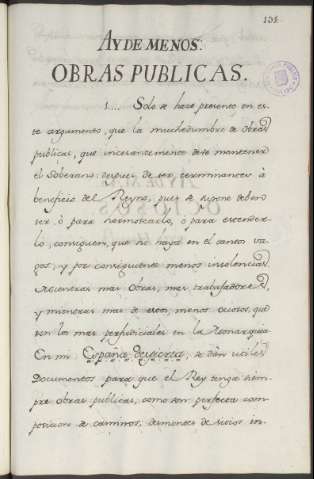 131.
AY DE MENOS.
OBRAS PUBLICAS.
1... Solo se hace presente en es-
te argumento, que la muchedumbre de obras
publicas, que incesantemente debe mantener
el Soberano despues de ser, terminantes à
beneficio del Reyno, pues se supone deben
ser ò para hermosearlo, ò para extender-
lo, consiguen, que no haya en el tantos va-
gos, y por consiguiente menos insolencias.
Mientras mas Obras, mas trabajadores,
y mientras mas de estos, menos ociosos, que
son los mas perjudiciales en la Monarquia
En mi España despierta, se dàn utiles
Documentos para que el Rey tenga siem-
pre obras publicas, como son perfecta com-
posicion de caminos, desmontes de sitios in-